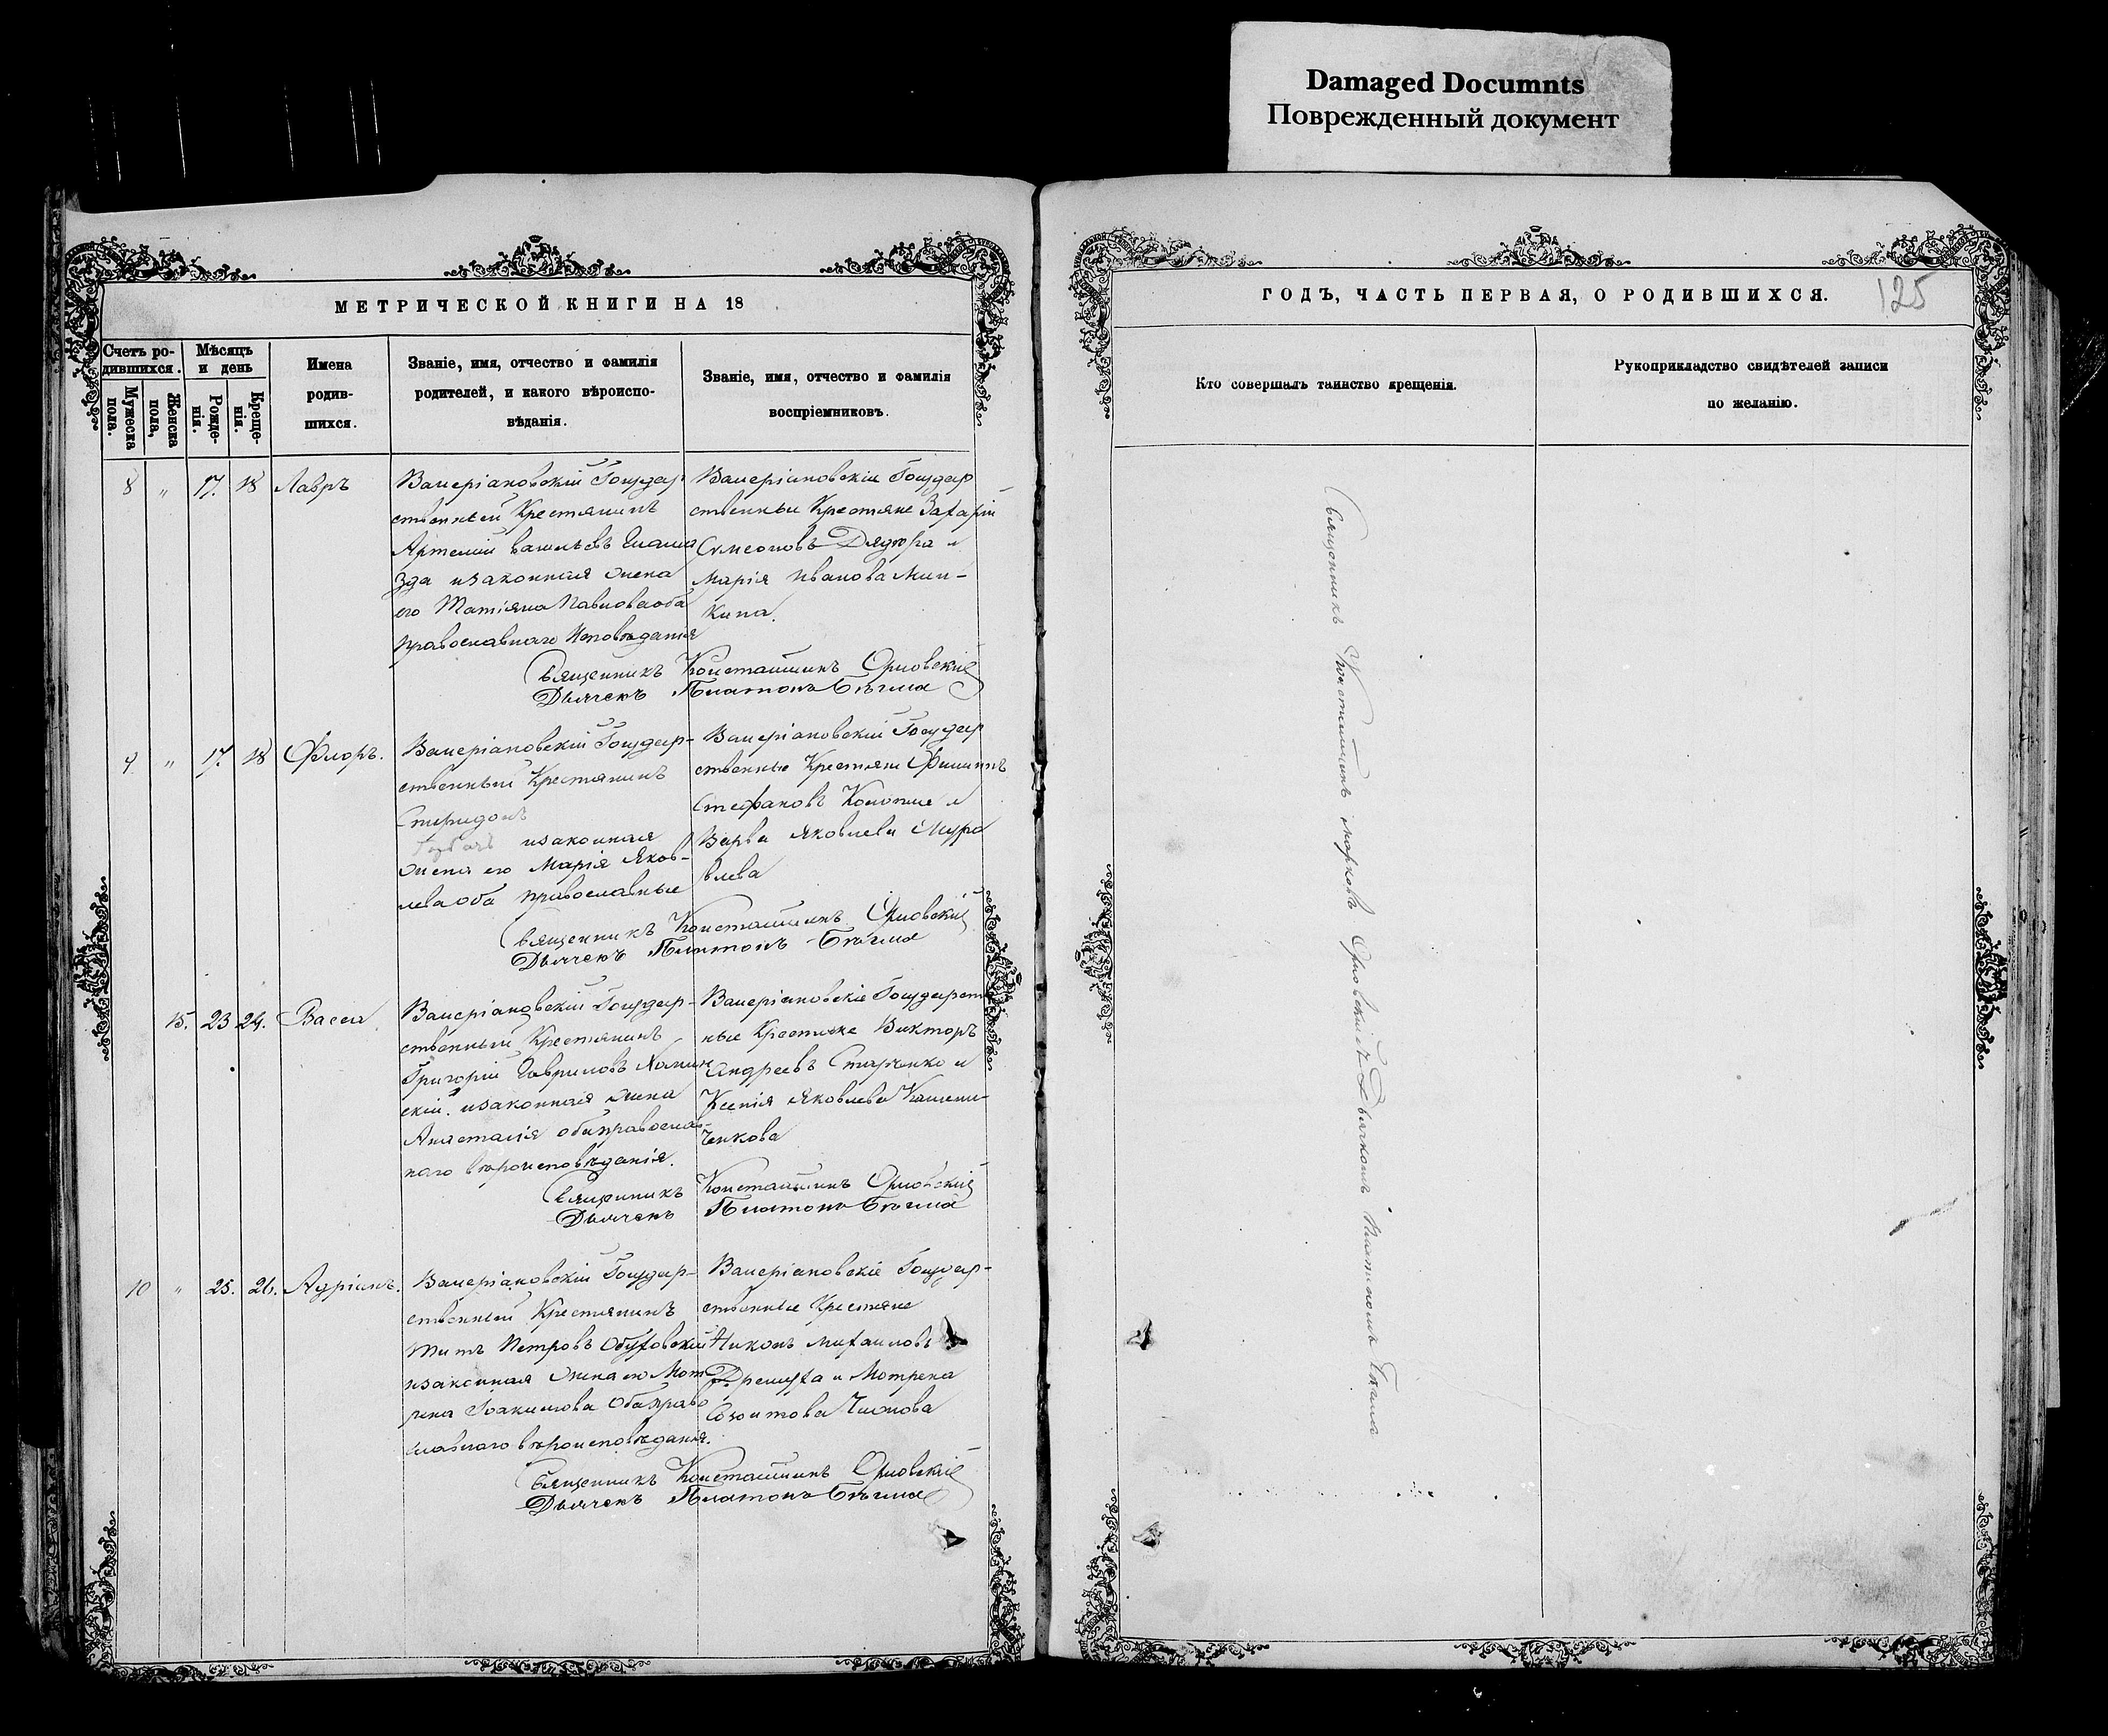 Damaged Documnts
Поврежденный документ
МЕТРИЧЕСКОЙ КНИГИ НА 18
Счетъ ро-
дившихся.
Мужеска
пола.
Женска
пола,
Мѣсяцъ
и день
Рожде-
нія.
Креще-
нія.
Имена
родив-
шихся.
Званіе, имя, отчество и фамилія
родителей, и какого вѣроиспо-
вѣданія.
Званіе, имя, отчество и фамилія
воспріемниковъ.
8 " 17. 18 Лавръ
Валеріановскій Государ
ственный Крестянинъ
Артемій Васильевъ
зда изаконная жена
его Татіяна Павловаоба
православнаго Исповѣданія
Валеріановскіе Государ
ственные Крестяне Захарій
Симеоновъ Дядюра и
Марія Иванова Мин-
кина.
Священникъ Констаттинъ Орловскій
Дьячекъ Платонъ
9 " 17. 18 Флоръ.
Валеріановскій Государ-
ственный Крестянинъ
Спиридонъ
изаконная
жена его Марія Яков-
леваоба православные
Валеріановскій Государ
ственные Крестяне Филиппъ
Стефановъ и
Варва Яковлева Мура
влева
Священникъ Констаттинъ Орловскій
Дьячекъ Платонъ
15. 23 24. Васса
Валеріановскій Государ-
ственный Крестянинъ
Григорій Гавриловъ
скій. изаконная жена
Анастасія обаправослав-
наго вѣроисповѣданія.
Валеріановскіе Государст
ные Крестяне Викторъ
Андреевъ Старченко и
Ксенія Яковлева
ченкова
Священникъ Констаттинъ Орловскій
Дьячекъ Платонъ
10 " 25. 26. Адріанъ.
Валеріановскій Государ-
ственный Крестянинъ
Титъ Петровъ Обуховскій
изаконная жена его Мот
рена Іоакимова Обаправо
славнаго вѣроисповѣданія.
Валеріановскіе Государ-
ственные Крестяне
Никонъ Михаиловъ
и Мотрена
Созонтова
Священникъ Констаттинъ Орловскій
Дьячекъ Платонъ
ГОДЪ, ЧАСТЬ ПЕРВАЯ, О РОДИВШИХСЯ.
125
Кто совершалъ таинство крещенія.
Рукоприкладство свидѣтелей записи
по желанію.
Священникъ Констаттинъ Марковъ Орловскій Дьячкомъ Платономъ